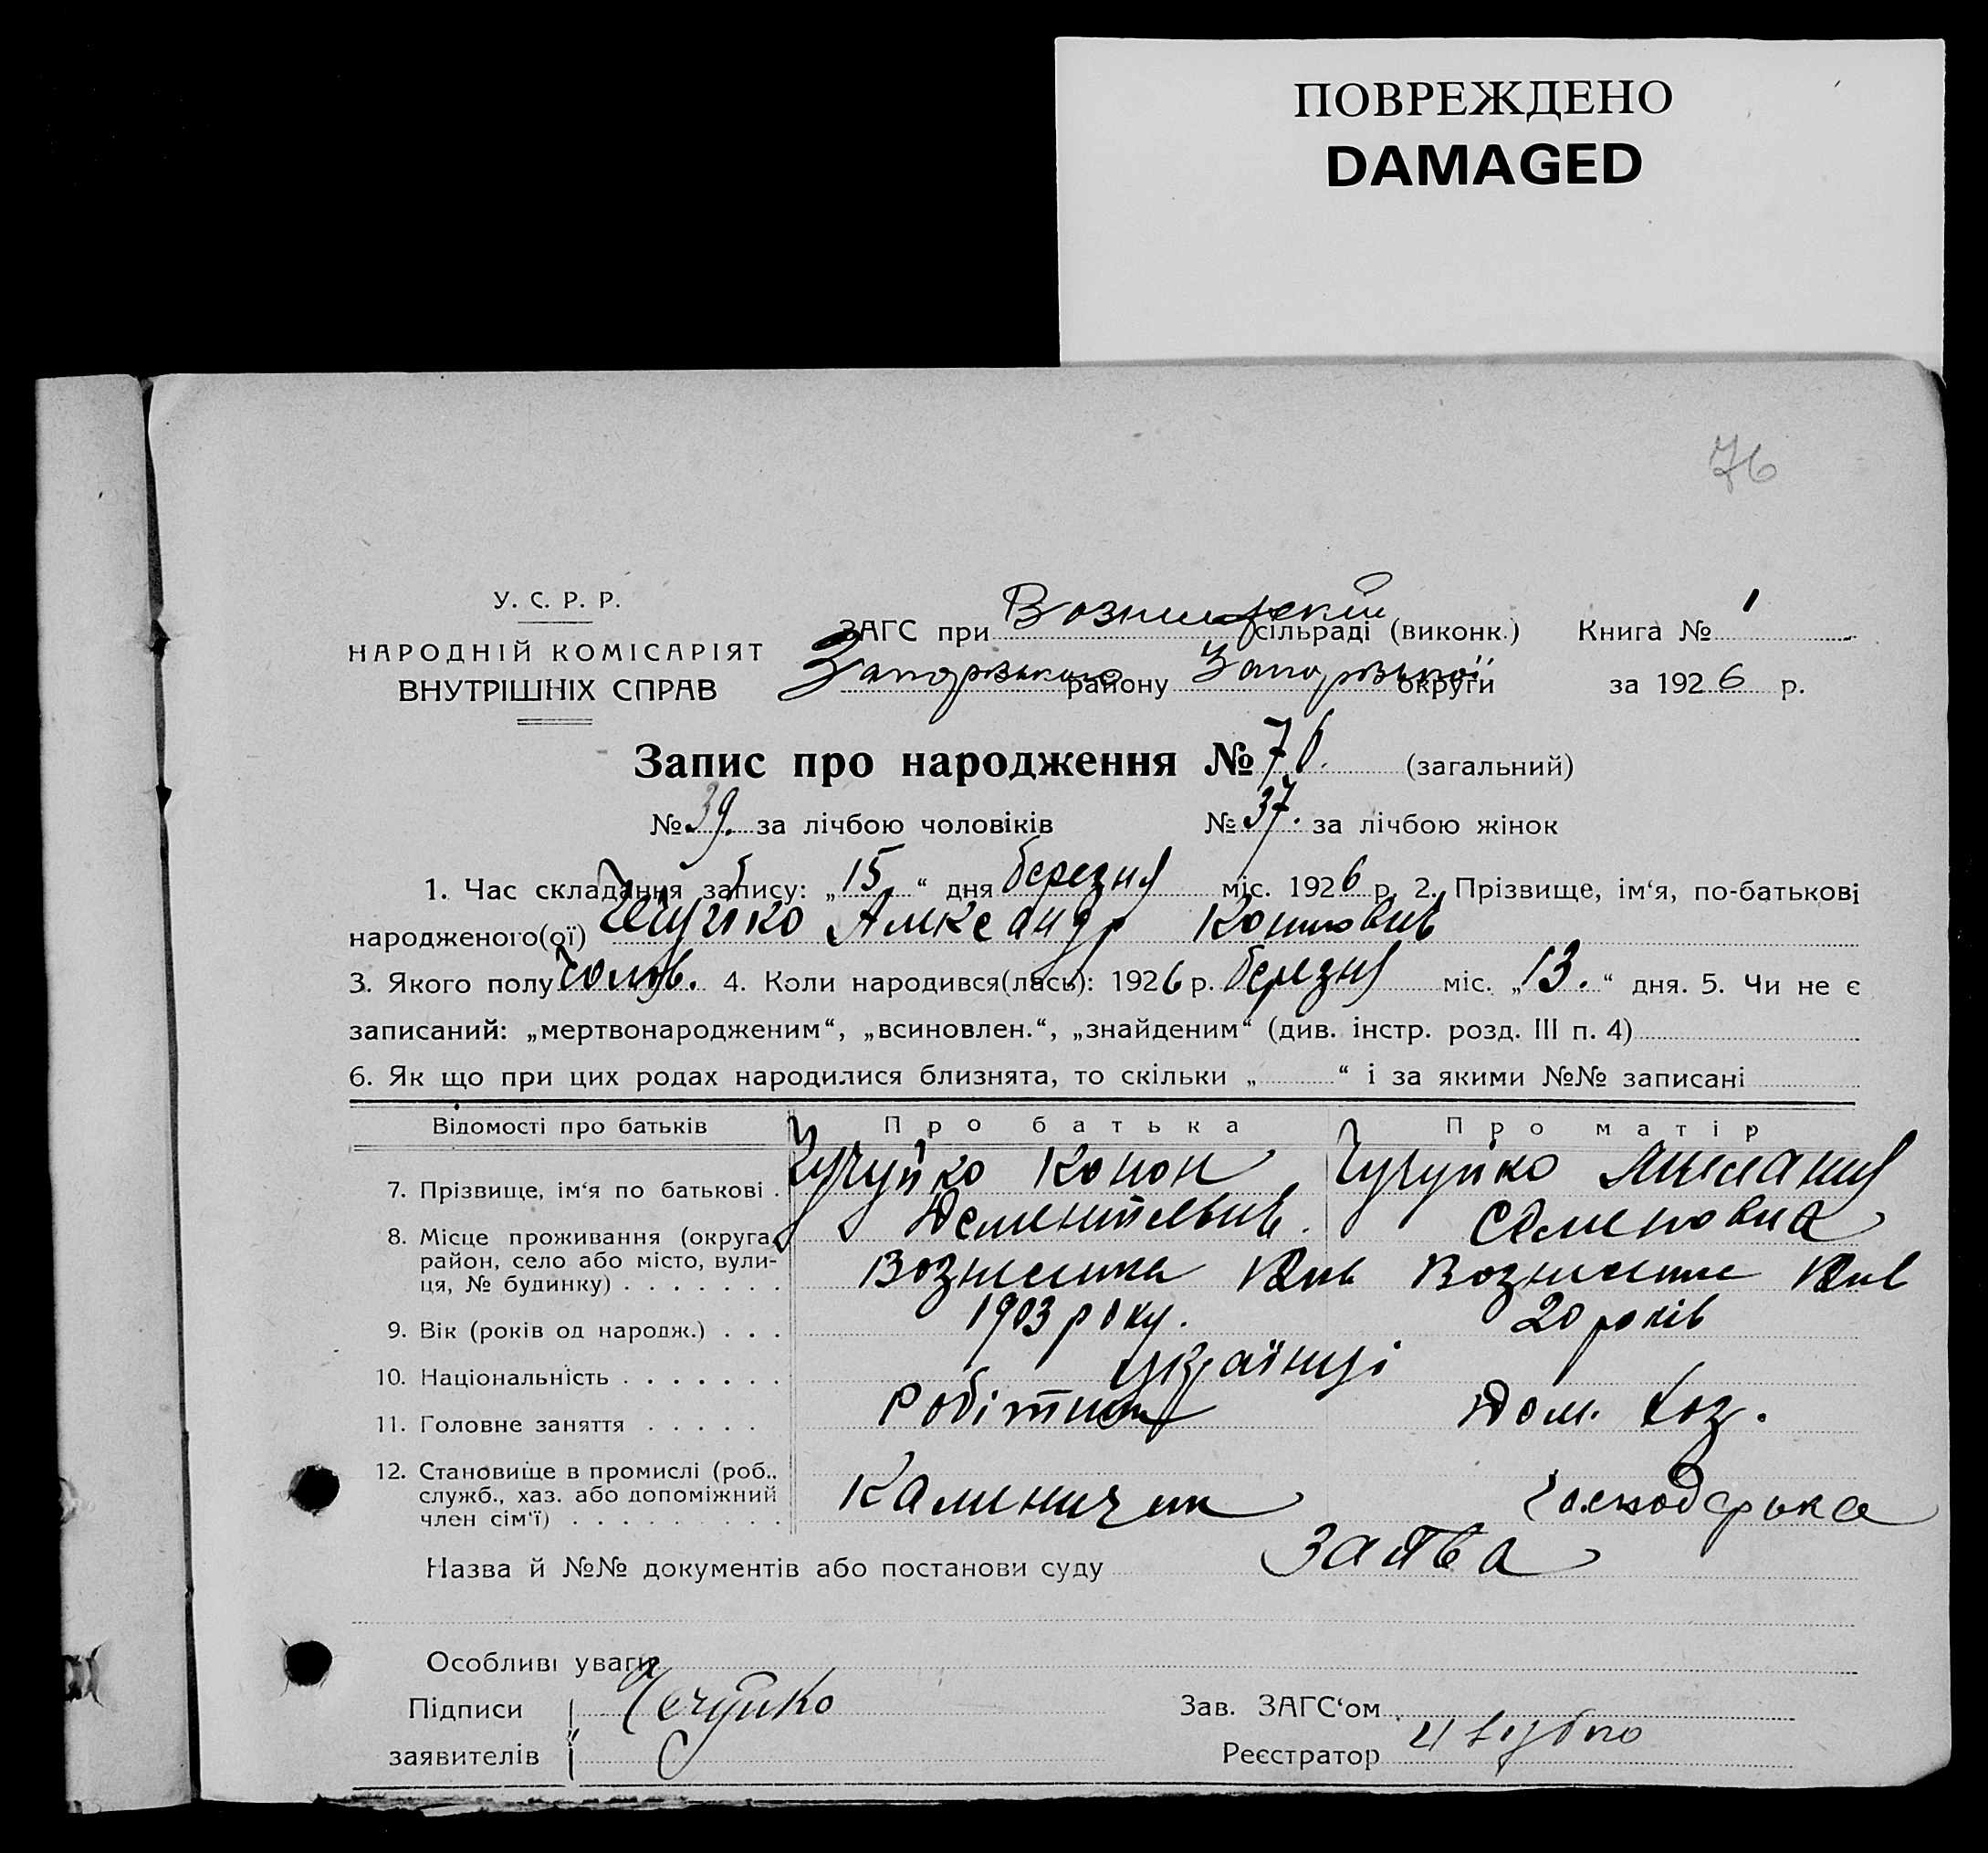 ПОВРЕЖДЕНО
DAMAGED
76
У. С. Р. Р.
НАРОДНІЙ КОМІСАРІЯТ
ВНУТРІШНІХ СПРАВ
ЗАГС при сільраді (виконк.) Книга № 1
району округи за 1926 р.
Запис про народження № 76. (загальний)
№ 39. за лічбою чоловіків № 37. за лічбою жінок
1. Час складання запису: „15“ дня березня міс. 1926 р. 2. Прізвище, ім‘я, по-батькові
народженого(ої) Александр
3. Якого полу Чолов. 4. Коли народився(лась): 1926 р. березня міс. „13.“ дня. 5. Чи не є
записаний: „мертвонародженим“, „всиновлен.“, „знайденим“ (див. інстр. розд. III п. 4)
6. Як що при цих родах народилися близнята, то скільки „ “ і за якими №№ записані
Відомості про батьків Про батька Про матір
7. Прізвище, ім‘я по батькові . Чучуйко Конон Чучуйко
Дементьевич. Семеновна
8. Місце проживання (округа,
район, село або місто, вули-
ця, № будинку) . . . . . . .
9. Вік (років од народж.) . . . 1903 року. 20 років
10. Національність . . . . . . . українці
11. Головне заняття . . . . . Робітник Дом. хоз.
12. Становище в промислі (роб.,
служб., хаз. або допоміжний
член сім‘ї) . . . . . . . . . Господарька
Назва й №№ документів або постанови суду Заява
Особливі уваги
Підписи Зав. ЗАГС‘ом
заявителів Реєстратор